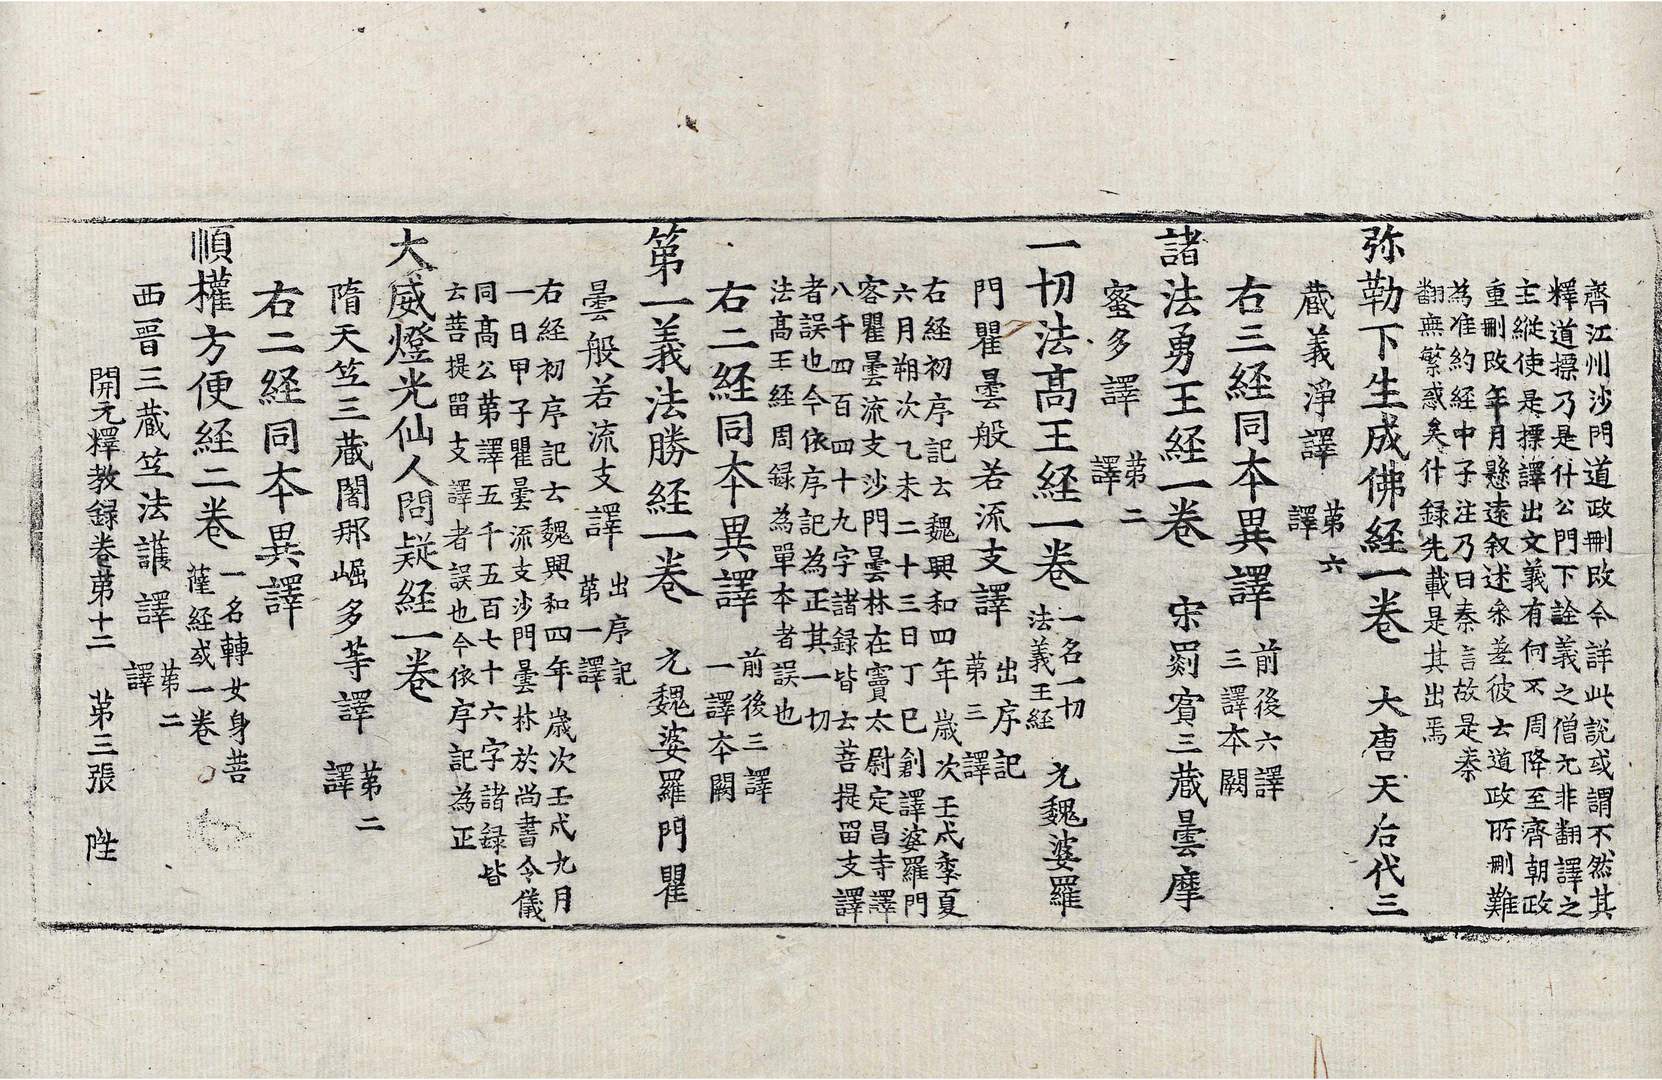 齊江州沙門道政刪改今詳此説或謂不然其
釋道標乃是什公門下詮義之僧无非翻譯之
主縱使是摽譯出文義有何不周降至齊朝政
重刪改年月懸遠叙述乖差彼云道政所刪難
為准約経中子注乃曰秦言故是秦
翻無繁惑矣什録先載是其出焉
弥勒下生成佛経一巻　大唐天后代三
藏義淨譯　第六
譯
右三経同本異譯　前後六譯
三譯本闕
諸法勇王経一巻　宋罽賔三藏曇摩
蜜多譯　第二
譯
一切法髙王経一巻　一名一切
法義王経　元魏婆羅
門瞿曇般若流支譯　出序記
第三譯
右経初序記云魏興和四年歳次壬戌季夏
六月朔次乙未二十三日丁巳創譯婆羅門
客瞿曇流支沙門曇林在竇太尉定昌寺譯
八千四百四十九字諸録皆云菩提留支譯
者誤也今依序記為正其一切
法髙王経周録為單本者誤也
右二経同本異譯　前後三譯
一譯本闕
第一義法勝経一巻　元魏婆羅門瞿
曇般若流支譯　出序記
第一譯
右経初序記云魏興和四年歳次壬戌九月
一日甲子瞿曇流支沙門曇林於尚書令儀
同髙公第譯五千五百七十六字諸録皆
云菩提留支譯者誤也今依序記為正
大威燈光仙人問疑経一巻
隋天竺三藏闍那崛多等譯　第二
譯
右二経同本異譯
順權方便経二巻　一名轉女身菩
薩経或一巻
西晉三藏竺法護譯　第二
譯
開元釋教録巻第十二　第三張　陞